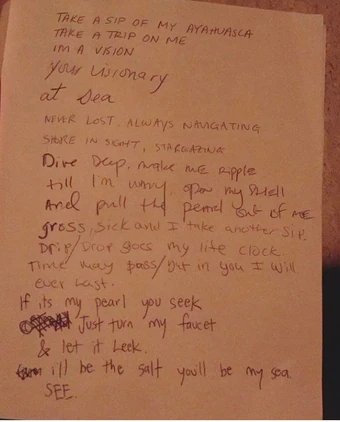 TAKE A SIP OF MY AYAHUASCA
TAKE A TRIP ON ME
IM A VISION
your visionary
at Sea
NEVER LOST, ALWAYS NAVIGATING
SHORE IN SIGHT, STARGAZING
Dive Deep, make ME Ripple
till I'm open my Shell
And pull the pearl out of ME
gross, sick and I take another sip.
Drip/Drop goes my life clock
Time may pass/but in you I will
ever Last.
If its my pearl you seek
Just turn my faucet
& let it Leek.
ill be the salt youll be my sea
SEE.